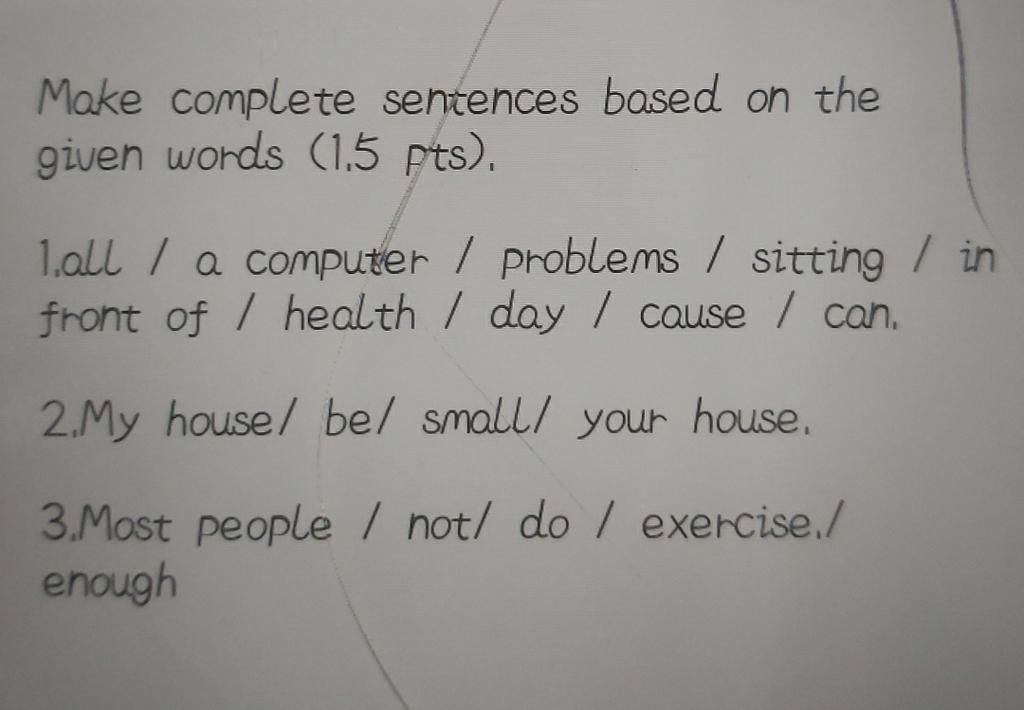 Make complete sentences based on the
given words (1.5 pts).
1.all / a computer / problems / sitting / in
front of / health / day / cause / can.
2.My house/ be/ small/ your house.
3.Most people / not/ do / exercise./
enough